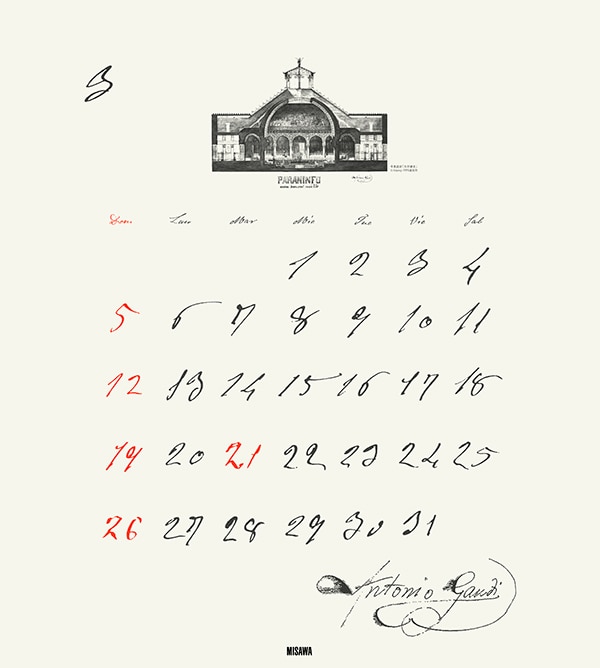 3
PARANINFO
Dom Lun Mar Mie Jue Vie Sab
1 2 3 4
5 6 7 8 9 10 11
12 13 14 15 16 17 18
19 20 21 22 23 24 25
26 27 28 29 30 31
Antonio Gaudí
MISAWA